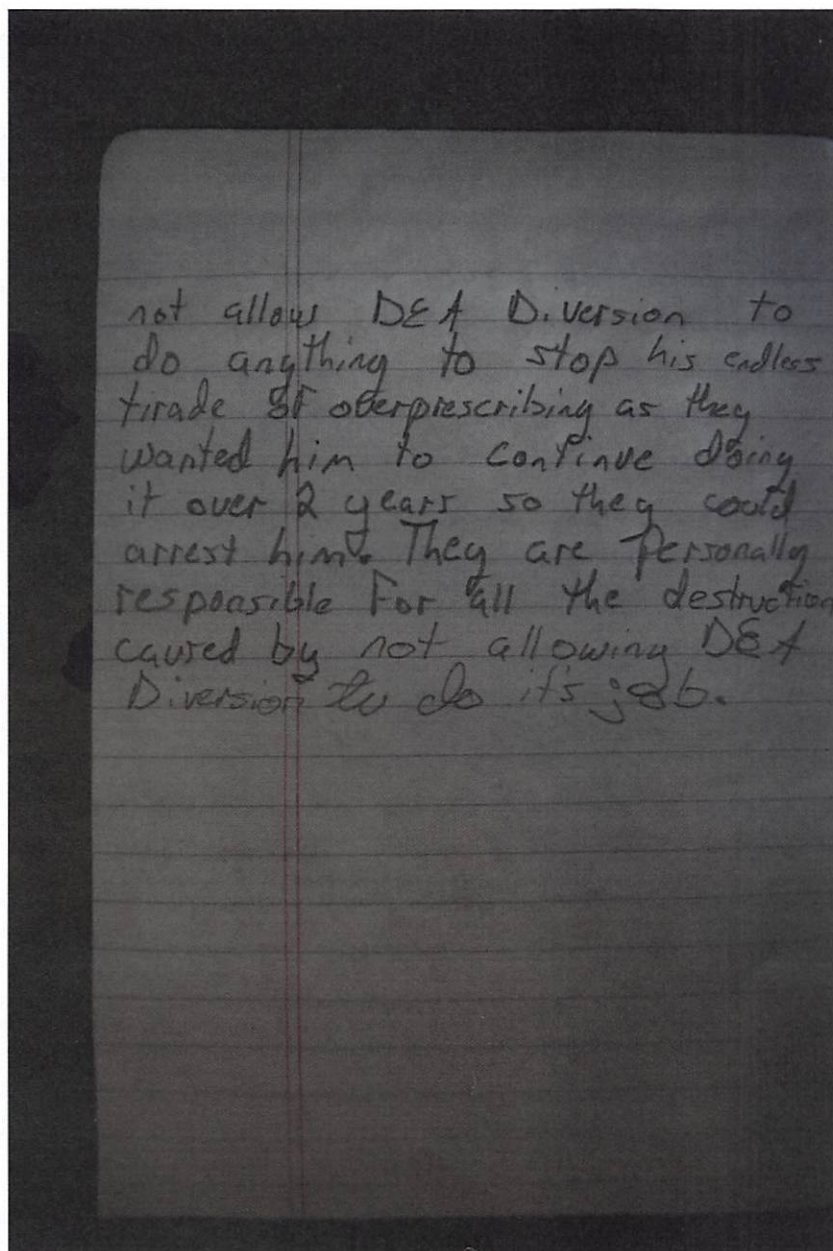 not allow DEA Diversion to
do anything to stop his endless
tirade of overprescribing as they
wanted him to continue doing
it over 2 years so they could
arrest him. They are Personally
responsible For all the destruction
caused by not allowing DEA
Diversion to do it's job.